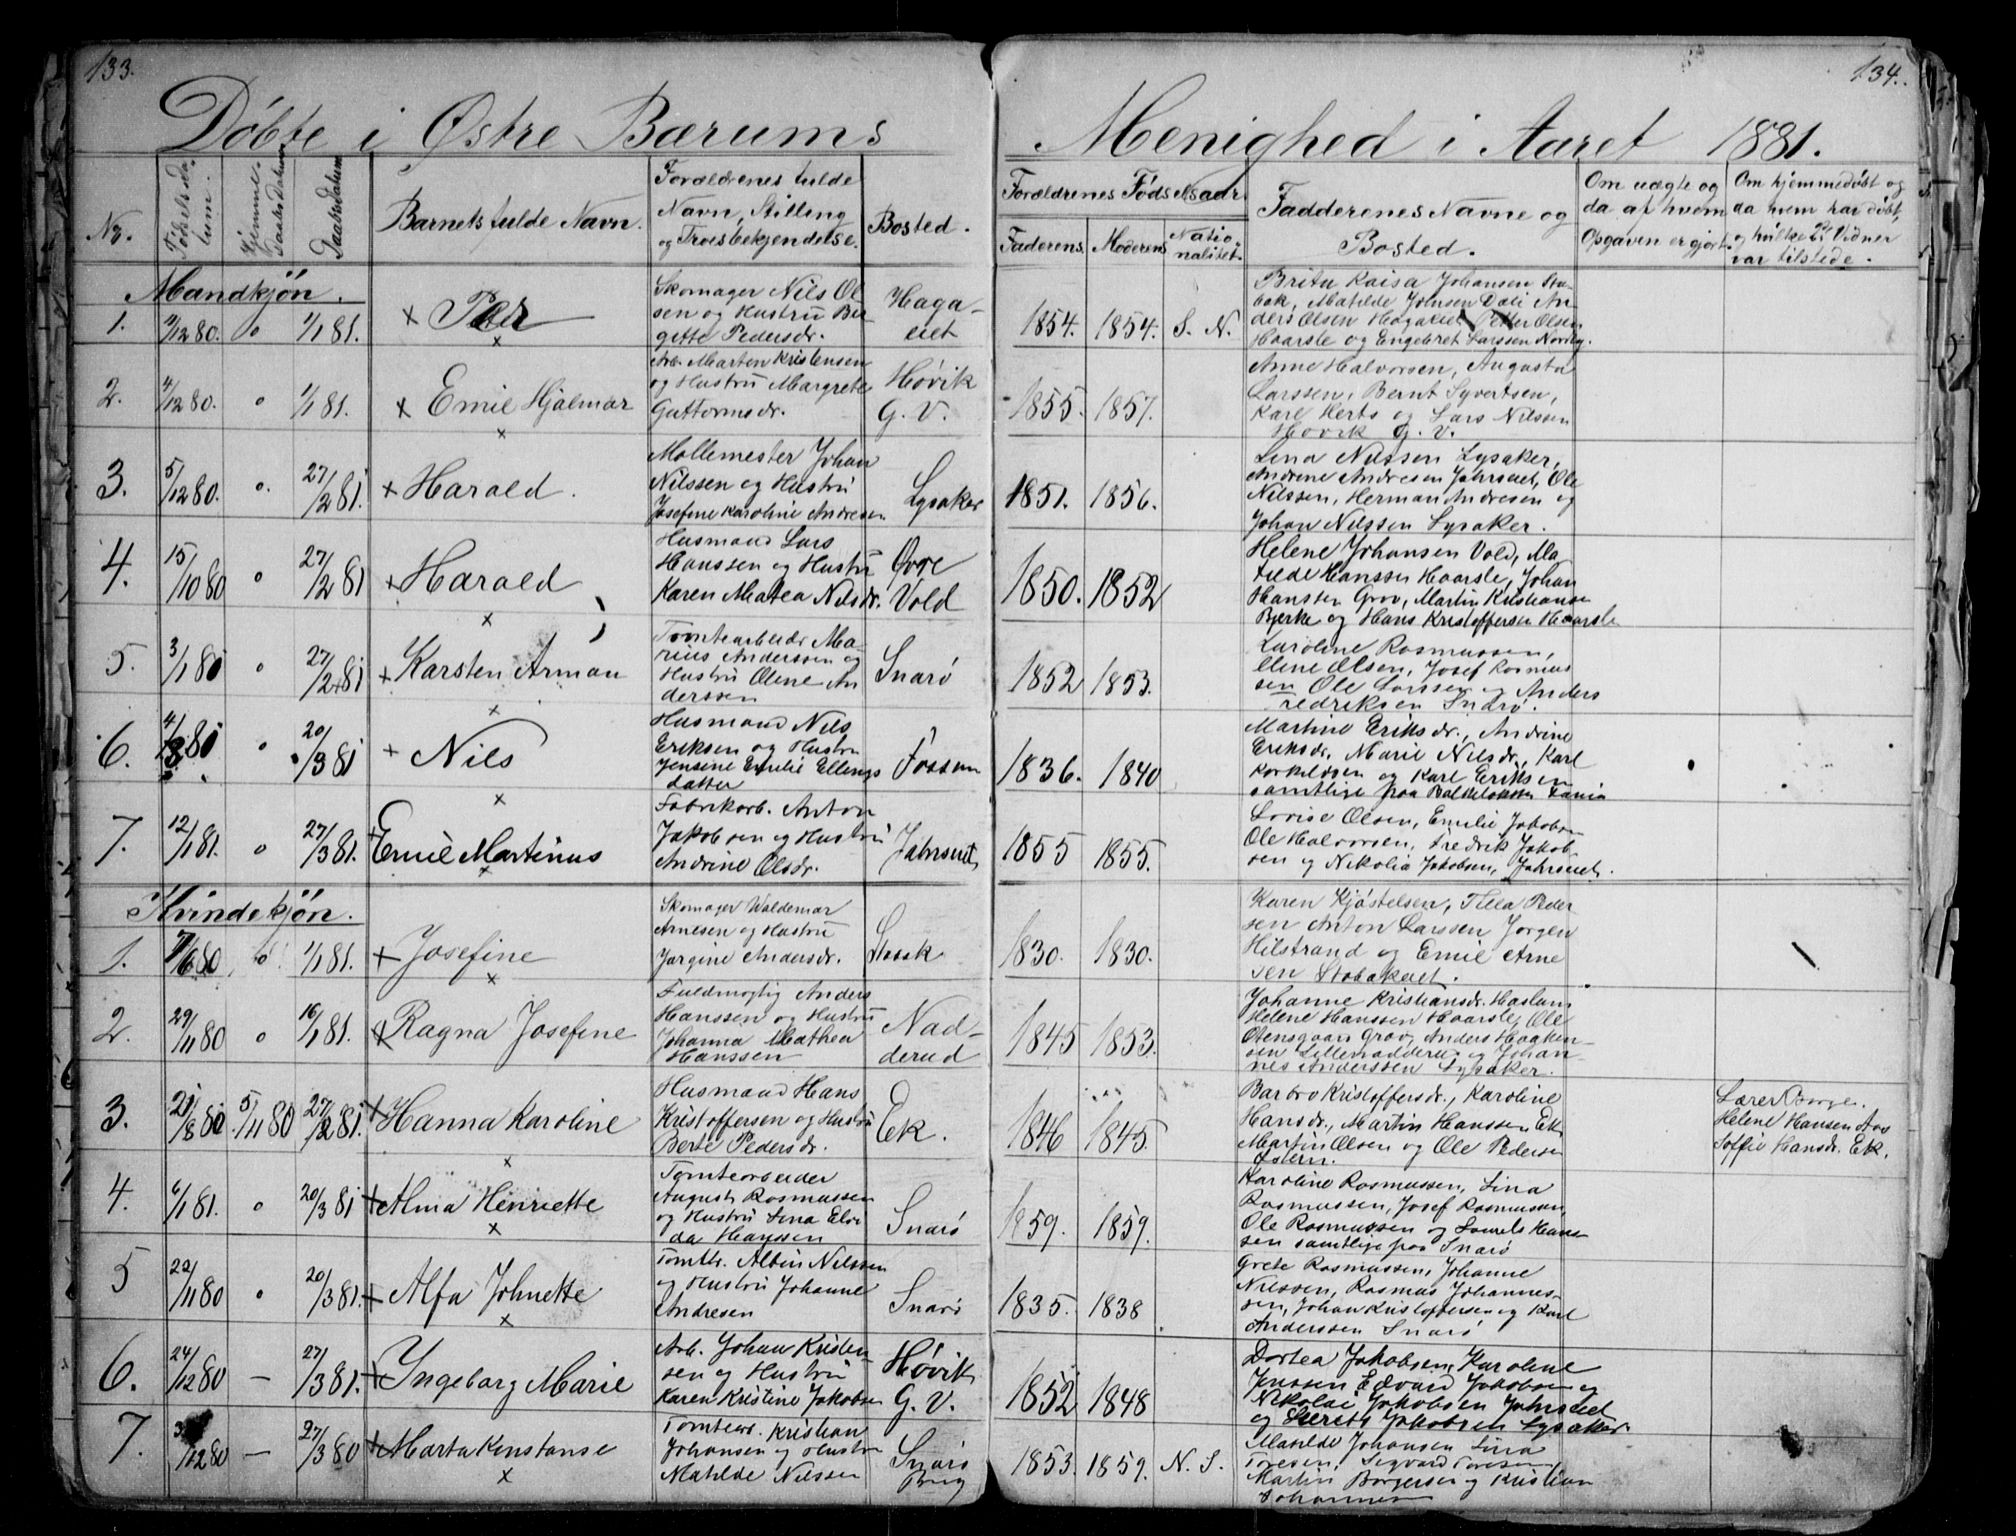 133.
134.
Döbte i Østre Bærums Menighed i Aaret 1881.
No.
Fødselsdatum.
Hjemmedaabsdatum
Daabsdatum
Barnets fulde Navn.
Forældrenes fulde
Navn, Stilling
og Troesbekjendelse.
Bosted.
Forældrenes Fødselsaar
Faderens.
Moderens
Natio-
nalitet.
Fadderenes Navne og
Bosted.
Om uægte og
da af hvem
Opgaven er gjort.
Om hjemmedøbt og
da hvem har døbt,
og hvilke Vidner
var tilstede.
Mandkjön.
1. 3/12 80. o 1/1 81. Peter
Skomager Nils Ol-
sen og Hustru Ber-
gette Pedersdr.
Haga-
eiet
1854. 1854. S. N.
Brita Kaisa Johansen Sta-
bæk, Matilde Johnsen Dæli An-
ders Olsen Hagaeiet Petter Olsen
Haarsle og Engebret Larssen Nordby.
2. 4/12 80. o 1/1 81. Emil Hjalmar
Arb. Marten Kristensen
og Hustru Margrete
Guttormsdr.
Høvik
G. V.
1855. 1857.
Anne Halvorsen, Augusta
Larssen, Bernt Syvertsen,
Karl Herts og Lars Nilssen
Høvik G. V.
3. 5/12 80. o. 27/2 81. Harald.
Møllemester Johan
Nilssen og Hustru
Josefine Karoline Andresen
Lysaker
1851. 1856.
Lina Nilssen Lysaker,
Andrene Andresen Jahrseiet, Ole
Nilssen, Herman Andresen og
Johan Nilssen Lysaker.
4. 15/10 80 o 27/2 81 Harald
Husmand Lars
Hanssen og Hustru
Karen Matea Nilsdr.
Øvre
Vold
1850. 1852
Helene Johansen Vold, Ma-
tilde Hanssen Haarsle, Johan
Hanssen Grav, Martin Kristianse
Bjerke og Hans Kristoffersen Haarsle
5. 3/1 80 o 27/2 81 Karsten Arman
Tomtearbeider Ma-
rius Anderssen og
Hustru Olene An
derssen
Snarö
1852 1853.
Karoline Rasmussen,
Elene Olsen, Josef Rasmus
sen Ole Larssen og Anders
Fredriksen Snarö.
6. o 20/3 81 Nils
Husmand Nils
Eriksen og Hustru
Jensine Emelie Ellings
datter
Fossum
1836. 1840
Martine Eriksdr., Andrine
Eriksdr., Marie Nilsdr., Karl
Torkildsen og Karl Eriksen
samtlige fra
7. 12/1 81. o 27/3 81. Emil Martinus
Fabrikarb. Anton
Jakobsen og Hustru
Andrine Olsdr.
Jahrseiet
1855 1855.
Lovise Olsen, Emilie Jakobsen
Ole Halvorsen, Fredrik Jakob
sen og Nikolia Jakobsen, Jahrseiet.
Kvindekjön.
1. 7/6 80 o 1/1 81. Josefine
Skomager Waldemar
Arnesen og Hustru
Jørgine Andersdr.
1830. 1830.
Karen Kjöstelsen, Tilla Peder
sen Anton Larssen Jørgen
Hilstrand og Emil Arne
sen Stabækeiet.
2. 29/11 80 o 16/1 81. Ragna Josefine
Fuldmægtig Anders
Hanssen og Hustru
Johanna Mathea
Hanssen
Nad-
derud
1845 1853.
Johanne Kristiansdr. Haslum
Helene Hanssen Haarsle, Ole
Grav, Anders Haaken-
sen Lillenadderu og Johan-
nes Anderssen Lysaker.
3. 21/8 80 5/11 80 27/2 81. Hanna Karoline
Husmand Hans
Kristoffersen og Hustru
Berte Pedersdr.
Ek.
1846 1845.
Barbro Kristoffersdr., Karoline
Hansdr., Martin Hanssen Ek
Martin Olsen og Ole Pedersen
Østern.
Lærer Borge.
Helene Hansen Aas
Soffie Hansdr. Ek.
4. 6/1 81. o 20/3 81 Alma Henriette
Tomtearbeider
August Rasmussen
og Hustru Lina Elvi
da Hanssen
Snarö
1859. 1859.
Karoline Rasmussen, Lina
Rasmussen, Josef Rasmussen,
Ole Rasmussen og Laurits Hans
sen samtlige paa Snarö
5 22/11 80 o 20/3 81. Alfa Johnette
Tomtb. Albin Nilssen
og Hustru Johanne
Andresen
Snarö
1835. 1838
Grete Rasmussen, Johanne
Nilssen, Rasmus Johannes-
sen, Johan Kristoffersen og Karl
Anderssen Snarö
6. 24/12 80 — 27/3 81. Ingeborg Marie
Arb. Johan Kristen-
sen og Hustru
Karen Kristine Jakobsen
Høvik
G. V.
1852 1848
Dortea Jakobsen, Karoline
Jenssen Edvard Jakobsen og
Nikolai Jakobsen Jahrseiet
og Jakobsen Lysaker.
7. /12 80 — 27/3 80 Marta Konstanse
Tomtearb. Kristian
Johansen og Hustru
Matilde Nilssen
Snarö
Brug
1853. 1859. N. S.
Matilde Johansen Lina
Toresen, Sigvard Toresen,
Martin Borgersen og Kristian
Johannesen